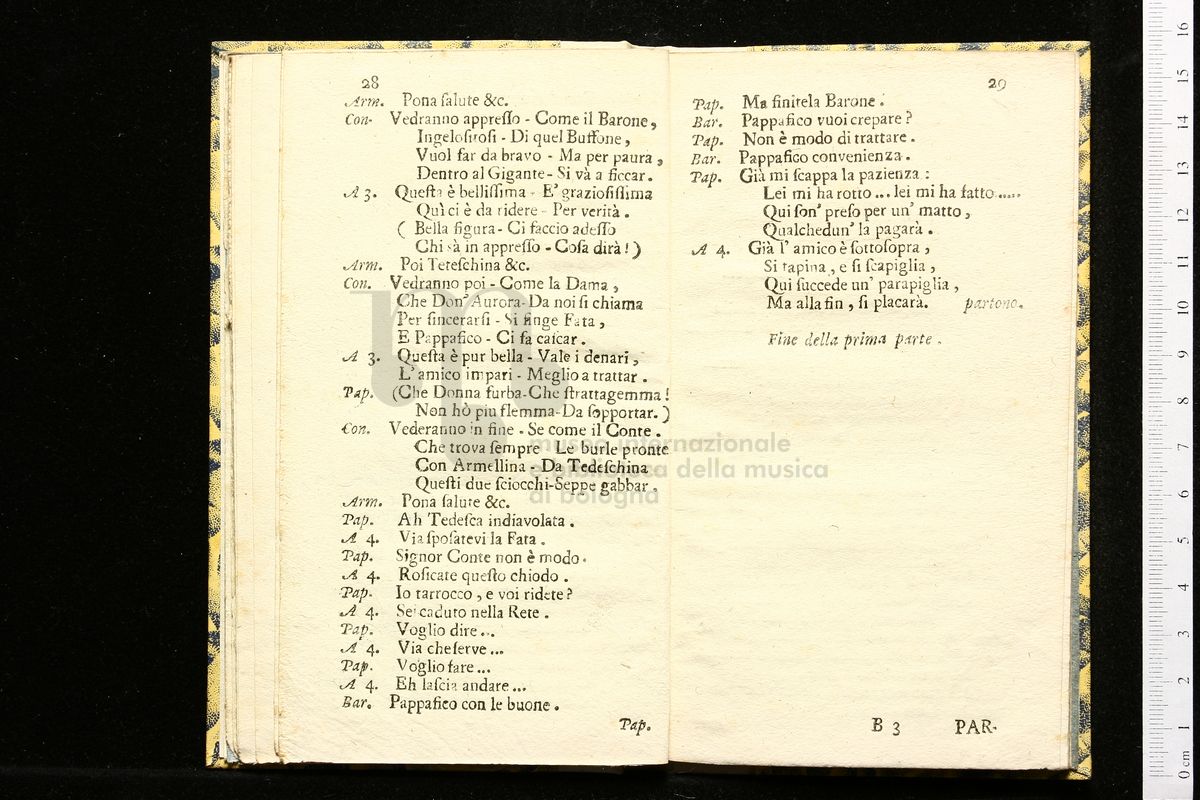 28
Arm. Pona ſalute &c.
Con. Vedranno appreſſo - Come il Barone,
Ingeloſitoſi - Di quel Buffone,
Vuol far da bravo - Ma per paura,
Dentro al Gigante - Si và a ficcar.
A 3. Queſta è belliſſima - E' grazioſiſſima
Quì ci è da ridere - Per verità.
( Bella figura - Ci faccio adeſſo
Chi sà in appreſſo - Coſa dirà! )
Arm. Poi Teteſchina &c.
Con. Vedranno poi - Come la Dama,
Che Don' Aurora - Da noi ſi chiama
Per ſincerarſi - Si finge Fata,
E Pappafico - Ci fa caſcar.
A 3. Queſta è pur bella - Vale i denari,
L' amico impari - Meglio a trattar.
Pap. (Che Donna furba - Che ſtrattagemma!
Non hò piu flemma - Da ſopportar.)
Con. Vederanno in fine - Se come il Conte.
Che trova ſempre - Le burle pronte
Con Armellina - Da Tedeſchina
Queſti due ſciocchi - Seppe gabbar.
Arm. Pona ſalute &c.
Pap. Ah Tedeſca indiavolata.
A 4. Via ſpoſatevi la Fata.
Pap. Signor Conte non è modo.
A 4. Roſicate queſto chiodo.
Pap. Io tarrocco, e voi ridete?
A 4. Sei caduto nella Rete.
Pap. Voglio dire...
A 4. Via che ſerve...
Pap. Voglio fare...
A 4. Eh laſcia andare...
Bar. Pappafico con le buone.
Pap.
29
Pap. Ma finitela Barone.
Bar. Pappafico vuoi crepare?
Pap. Non è modo di trattare.
Bar. Pappafico convenienza.
Pap. Già mi ſcappa la pazienza:
Lei mi ha rotto... lei mi ha fatto.....
Qui ſon' preſo per un' matto,
Qualchedun' la pagarà.
A 4. Già l' amico è ſottoſopra,
Si tapina, e ſi ſcapiglia,
Qui ſuccede un' parapiglia,
Ma alla fin, ſi placarà. partono.
Fine della prima parte.
B 3 PAR-
museo internazionale
e biblioteca della musica
di bologna
0 cm 1 2 3 4 5 6 7 8 9 10 11 12 13 14 15 16